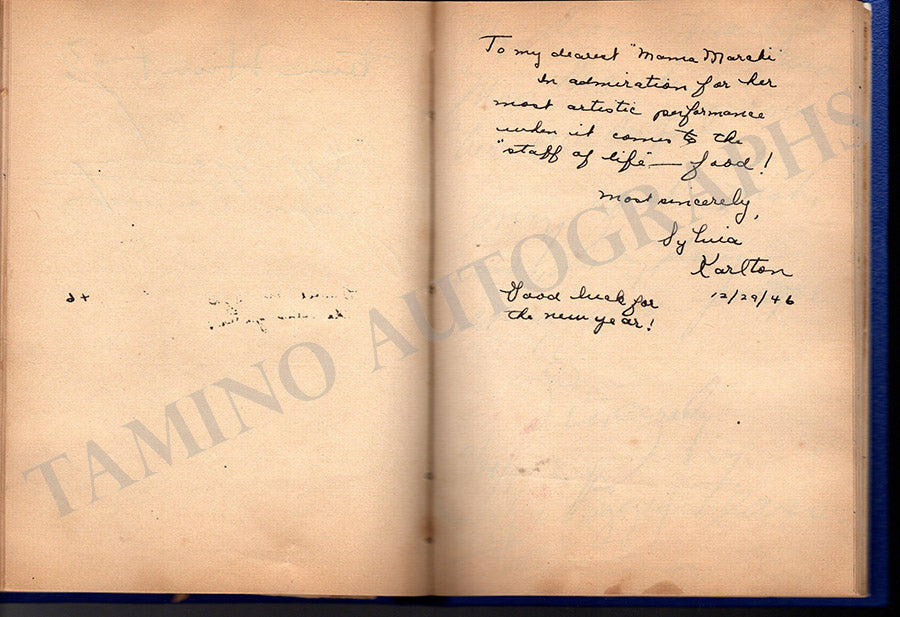 To my dearest "Mama Marchi"
In admiration for her
most artistic performance
when it comes to the
"staff of life" — food!
Most sincerely,
Sylvia
Karlton
12/29/46
Good luck for
the new year!
TAMINO AUTOGRAPHS